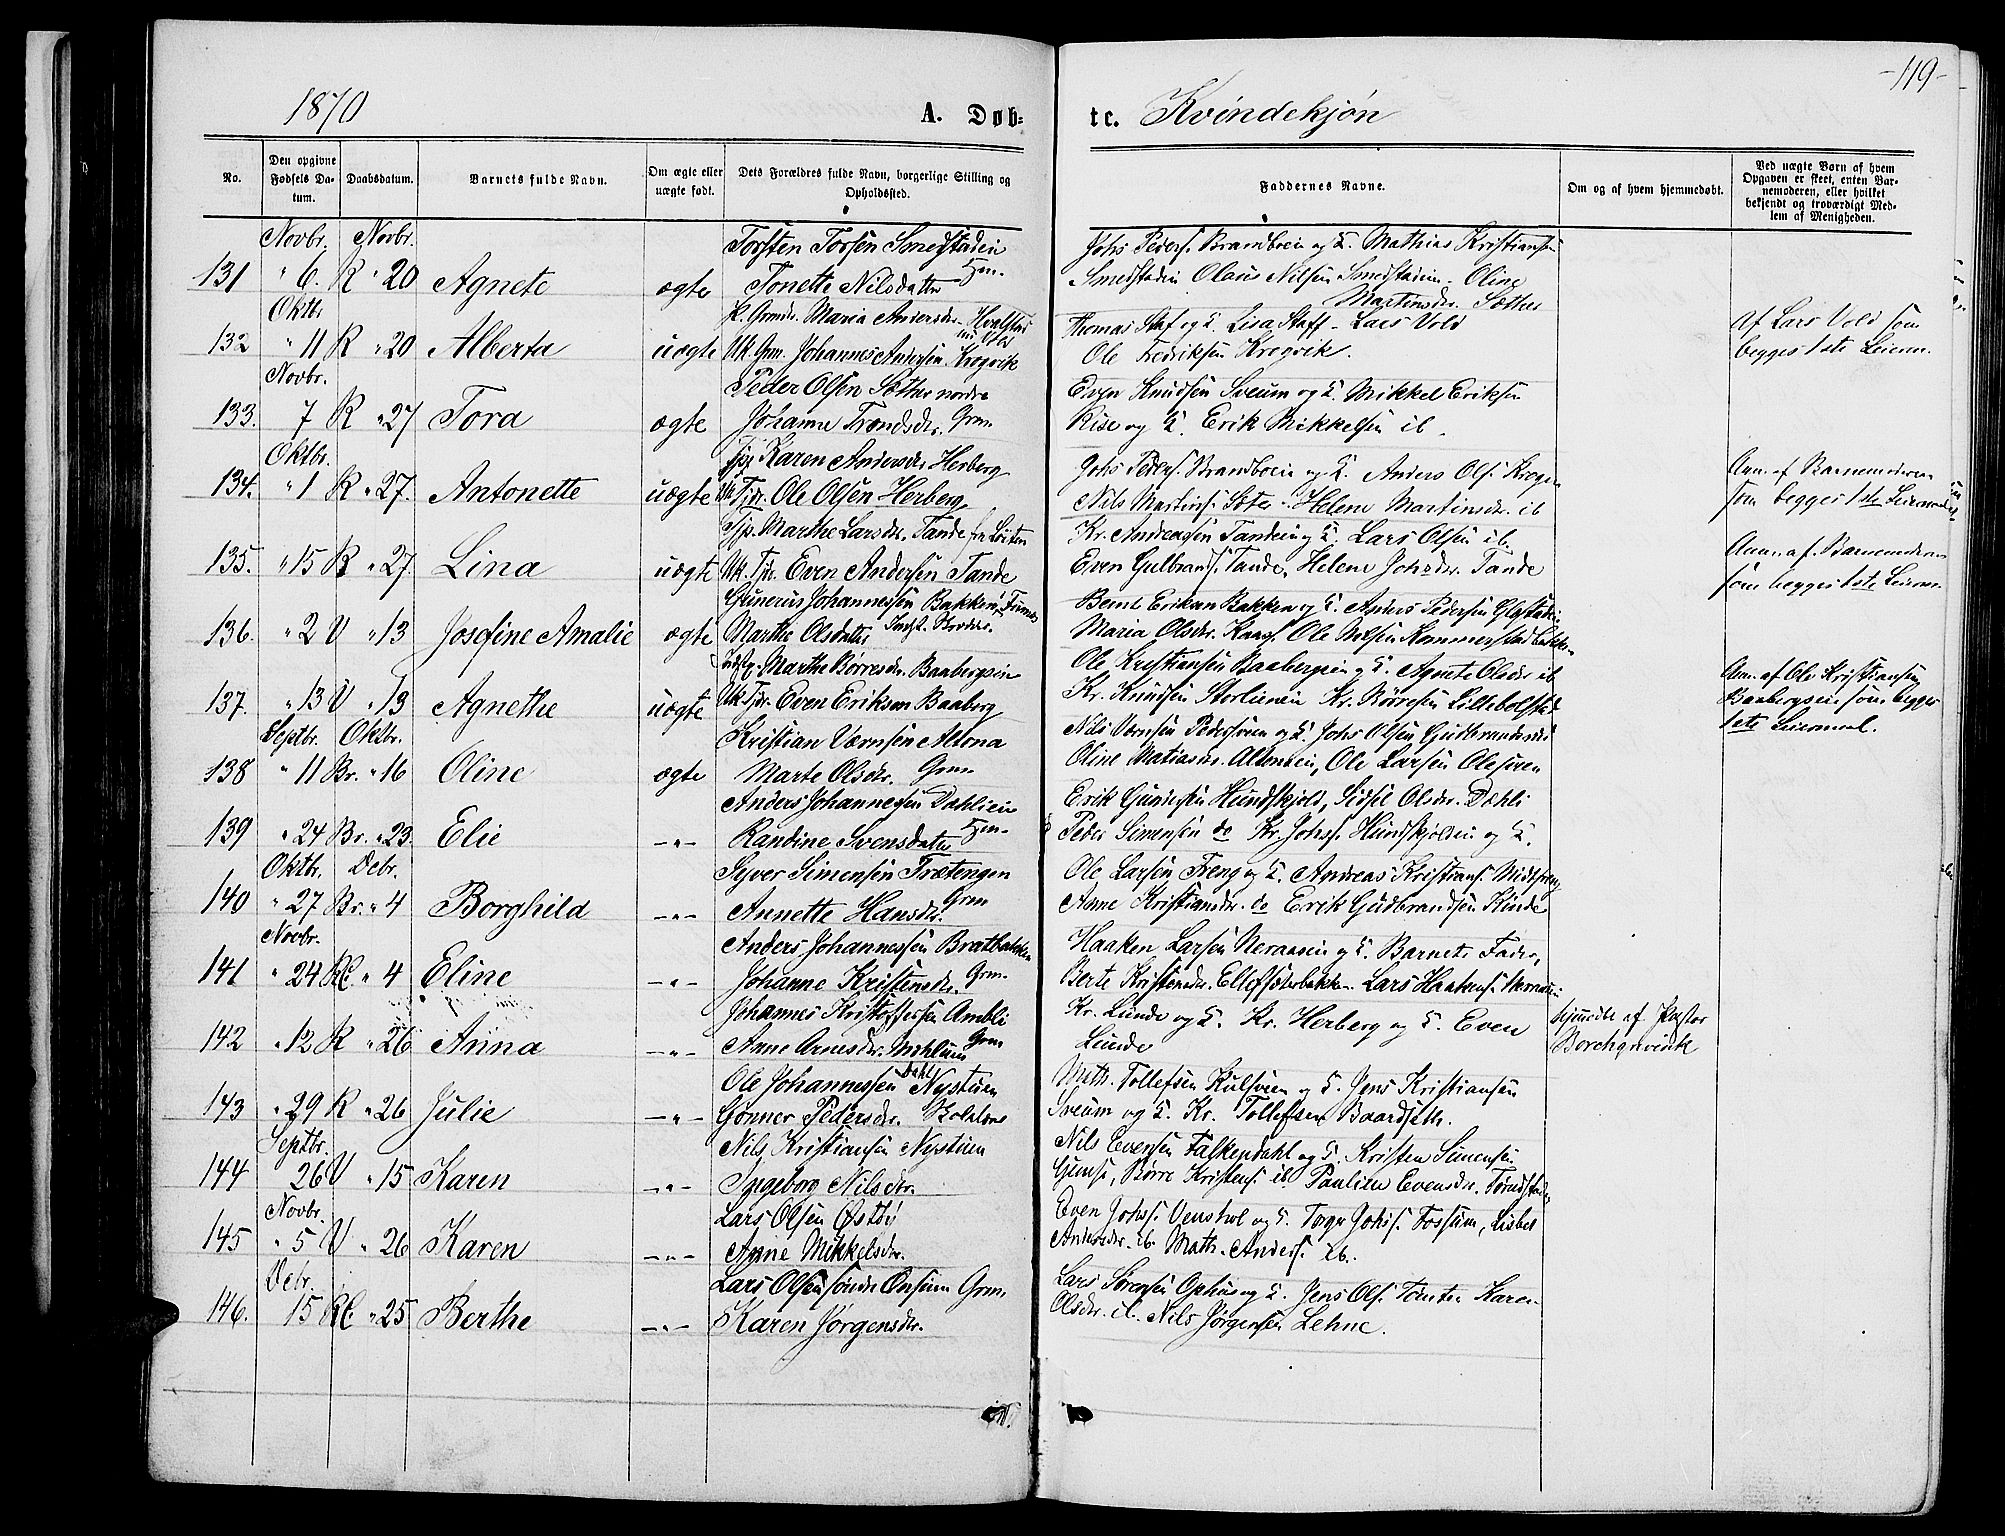 1870 A. Døb-
te. Kvindekjøn -119-
No.
Den opgivne Fødsels Datum.
Daabsdatum.
Barnets fulde Navn.
Om ægte eller uægte født.
Dets Forældres fulde Navn, borgerlige Stilling og Opholdssted.
Faddernes Navne.
Om og af hvem hjemmedøbt.
Ved uægte Børn af hvem Opgaven er skeet, enten Barnemoderen, eller hvilket bekjendt og troværdigt Medlem af Menigheden.
Novbr. Novbr. Torsten Torsen Smedstadein
131 " 6. K " 20 Agnete ægte Tonette Nilsdatter
Johs Peders. Brandboein og K. Mathias Kristiansen
Smedstadein Olaus Nilsen Smedstadein. Oline
Martinsdr. Sæther
Oktbr. Maria Andersdr.
132 " 11 K " 20 Alberta uægte Uk. Grm. Johannes Andersen Krogvik
Thomas Staf og K. Lisa Staff - Lars Vold
Ole Fredriksen Krogvik.
Af Lars Vold som
begges 1ste Leierm.
Novbr. Peder Olsen Sæther nordre
133. 7 K " 27 Tora ægte Johanne Trondsdr. Grm.
Even Knudsen Sveum og K. Mikkel Eriksen
Rise og K. Erik Mikkelsen ib.
Oktbr. Karen Andersdr Herberg
134. " 1 K " 27. Antonette uægte Uk Tjr. Ole Olsen Herberg
Johs Peders. Brandboein og K. Anders Ols. Krogen
Nils Martins. Helene Martinsdr. ib
Ann. af Barnemoderen
som begges 1ste Leiermaal
Tjp. Marthe Larsdr. Tande fra Løiten
135. " 15 K " 27. Lina uægte Uk. Tjr. Even Andersen Tande
Kr. Andreassen Tandein og K. Lars Olsen ib.
Even Gulbrands. Tande, Helene Johsdr. Tande
Ann. af Barnemoderen
som begges 1ste Leierm.
Gunerus Johannessen Bakken Furnes
136. " 2 V " 13 Josefine Amalie ægte Marthe Olsdatter
Bernt Eriksen Bakken og K. Anders Pedersen
Maria Olsdr. Ole Nilsen
Marthe Børresdr. Baabergsein
137. " 13 V " 13 Agnethe uægte Uk Tjr. Even Eriksen Baaberg
Ole Kristiansen Baabergsein og K. Agnete Olsdr ib
Kr. Knudsen Storlunein Kr. Børresen Lillebolstad
Ann. af Ole Kristiansen
Baabergsein som begges
1ste Leiermaal.
Septbr. Oktbr. Kristian Værnsen Altona
138 " 11 Br. " 16 Oline ægte Marte Olsdr. Grm
Nils Værnsen Pedersveen og K. Johs Olsen
Oline Matiasdr. Altonaein, Ole Larsen
Anders Johannessen Dahliein
139 " 24 Br. " 23. Elie - " - Randine Svensdatter
Erik Gundersen Hundskjold, Sidsel Olsdr. Dæhli
Peder Simensen do Kr. Johs. Hundskjoldein og K.
Oktbr. Debr. Syver Simensen Trætengen
140 " 27 Br. " 4 Borghild - " - Annette Hansdr. Grm
Ole Larsen Freng og K. Andreas Kristians.
Anne Kristiansdr. do Erik Gudbrandsen Kinde
Novbr. Anders Johannessen Bratbakken
141 " 24 " 4 Eline - " - Johanne Kristensdr. Grm.
Haaken Larsen Neraasein og K. Barnets Fader,
Berte Kristensdr. Ellefsæterbakken. Lars Haakens.
Johannes Kristoffersen Ambli
142 " 12 K " 26 Anna - " - Anne Arnesdr. Grm
Kr. Lunde og K. Kr. Herberg og K. Even
Lunde
hjemmedt af Pastor
Borchgrevink
Ole Johannessen Nystuen
143 " 29 K " 26 Julie - " - Gønner Pedersdr.
Math. Tollefsen Kulsveen og K. Jens Kristiansen
Sveum og K. Kr. Tollefsen Baardseth.
Septbr. Nils Kristiansen Nystuen
144 26 V " 15 Karen - " - Ingeborg Nilsdr.
Nils Evensen Falkendahl og K. Kristen Simensen
Børre Kristens. ib. Pauline Evensdr.
Novbr. Lars Olsen Østby
145 " 5 V " 26 Karen - " - Anne Mikkelsdr.
Even Johs. Venskol og K. Tage Johs. Fossum, Lisbet
Andersdr. ib. Math. Anders. ib.
Debr. Lars Olsen søndre Onsum Grm.
146. 15 " 25 Berthe - " - Karen Jørgensdr.
Lars Sørensen Ophus og K. Jens Ols. Tomter Karen
Olsdr. ib. Nils Jørgensen Lehne.